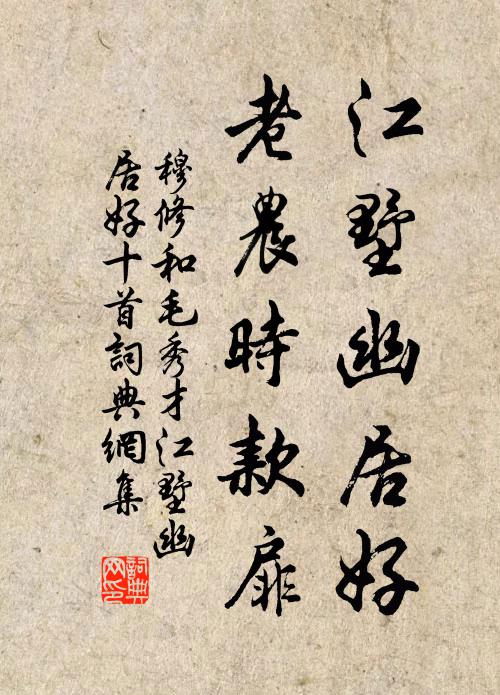 江墅幽居好
老農時款扉
穆修和毛秀才江墅幽
居好十首詞典網集
詞典
网印